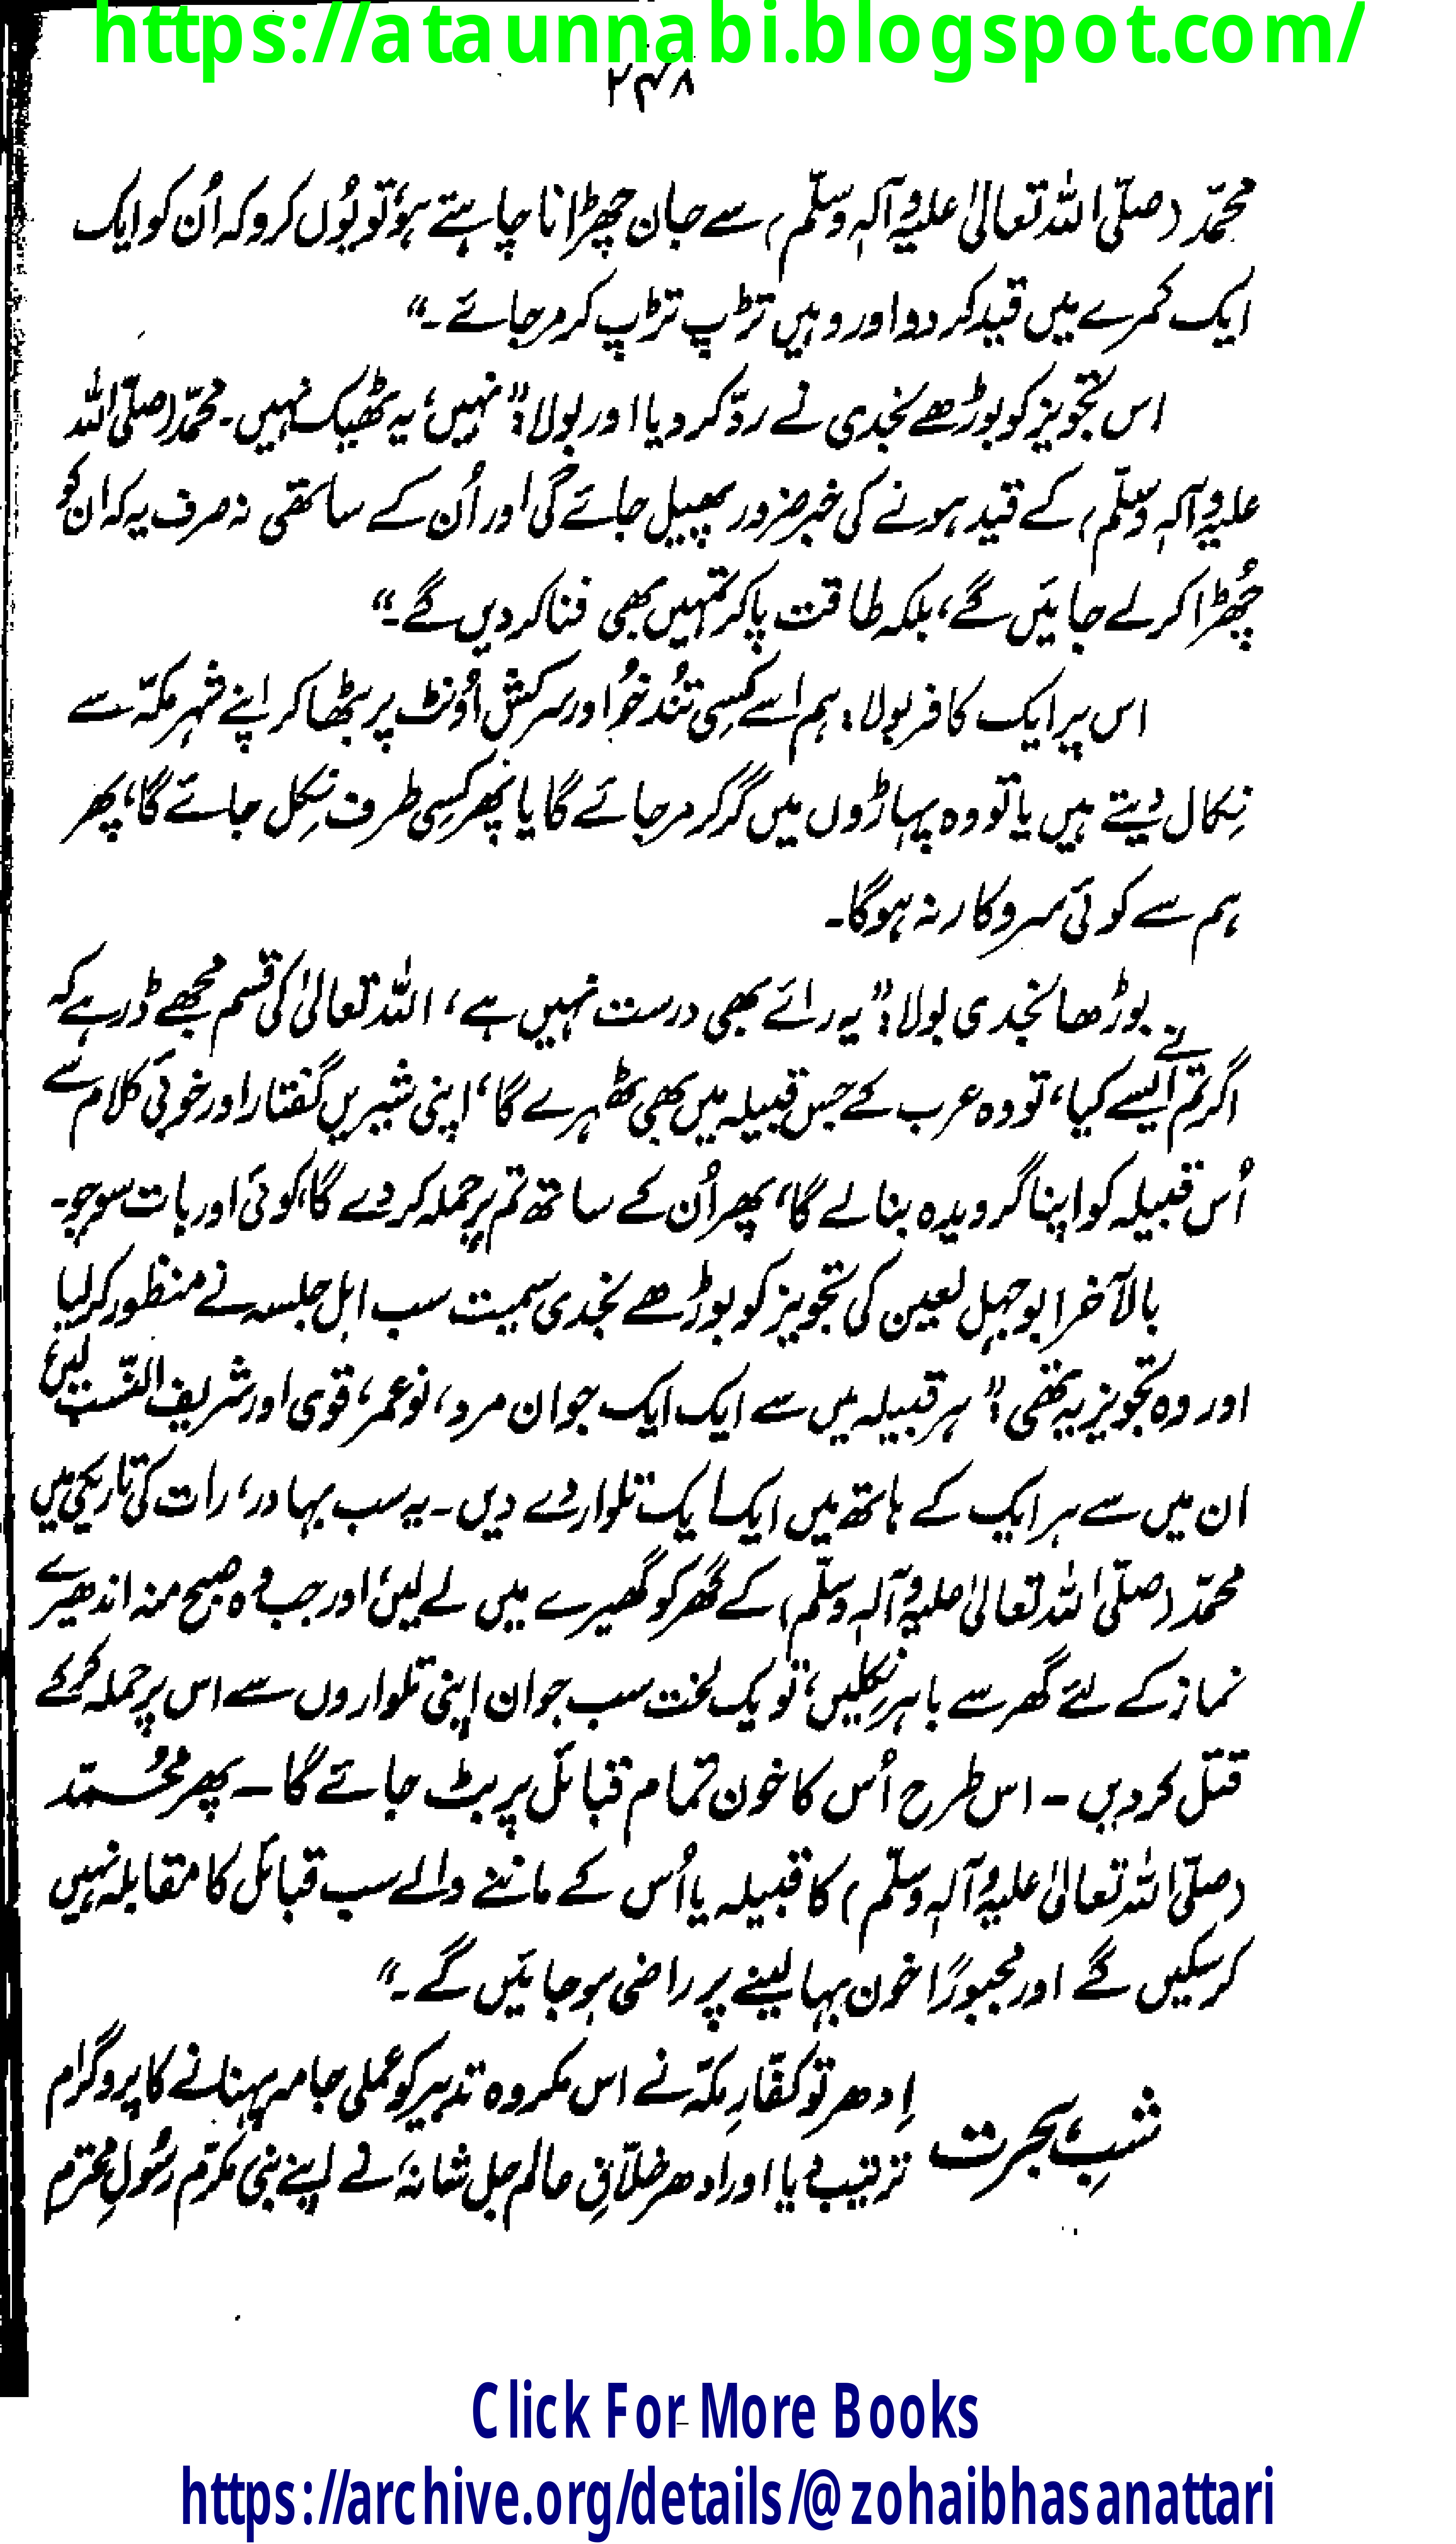 https://ataunnabi.blogspot.com/
۲۴۸
محمّد (صلّی اللہ تعالیٰ علیہ وآلہٖ وسلّم) سے جان چھڑانا چاہتے ہو، تو یُوں کرو کہ اُن کو ایک
ایک کمرے میں قید کر دو اور وہیں تڑپ تڑپ کر مر جائے۔“
اس تجویز کو بوڑھے نجدی نے ردّ کر دیا اور بولا: ”نہیں، یہ ٹھیک نہیں۔ محمّد (صلّی اللہ
علیہ وآلہٖ وسلّم) کے قید ہونے کی خبر ضرور پھیل جائے گی اور اُن کے ساتھی نہ صرف یہ کہ ان کو
چُھڑا کر لے جائیں گے، بلکہ طاقت پا کر تمہیں بھی فنا کر دیں گے۔“
اس پر ایک کافر بولا: ہم اسے کِسی تُند خُو اور سرکش اُونٹ پر بٹھا کر اپنے شہر مکہّ سے
نِکال دیتے ہیں یا تو وہ پہاڑوں میں گر کر مر جائے گا یا پھر کِسی طرف نِکل جائے گا، پھر
ہم سے کوئی سروکار نہ ہوگا۔
بوڑھا نجدی بولا: ”یہ رائے بھی درست نہیں ہے، اللہ تعالیٰ کی قسم مجھے ڈر ہے کہ
اگر تم نے ایسے کیا، تو وہ عرب کے جس قبیلہ میں بھی ٹھہرے گا، اپنی شیریں گفتار اور خوبئ کلام سے
اُس قبیلہ کو اپنا گرویدہ بنا لے گا، پھر اُن کے ساتھ تم پر حملہ کر دے گا، کوئی اور بات سوچو۔
بالآخر ابوجہل لعین کی تجویز کو بوڑھے نجدی سمیت سب اہل جلسہ نے منظور کر لیا
اور وہ تجویز یہ تھی: ”ہر قبیلہ میں سے ایک ایک جوان مرد، نوعمر، قوی اور شریف النّسب لیں،
ان میں سے ہر ایک کے ہاتھ میں ایک ایک تلوار دے دیں۔ یہ سب بہادر، رات کی تاریکی میں
محمّد (صلّی اللہ تعالیٰ علیہ وآلہٖ وسلّم) کے گھر کو گھیرے میں لے لیں، اور جب وہ صبح منہ اندھیرے
نماز کے لئے گھر سے باہر نِکلیں، تو یک لخت سب جوان اپنی تلواروں سے اس پر حملہ کر کے
قتل کر دیں۔ اس طرح اُس کا خون تمام قبائل پر بٹ جائے گا۔ پھر محُمّد
(صلّی اللہ تعالیٰ علیہ وآلہٖ وسلّم) کا قبیلہ یا اُس کے ماننے والے سب قبائل کا مقابلہ نہیں
کر سکیں گے اور مجبورًا خون بہا لینے پر راضی ہو جائیں گے۔“
شبِ ہجرت
اِدھر تو کفّارِ مکہّ نے اس مکروہ تدبیر کو عملی جامہ پہنانے کا پروگرام
ترتیب دیا اور ادھر خلاّقِ عالم جل شانہٗ نے اپنے نبی مکرّم رسُولِ محترم
Click For More Books
https://archive.org/details/@zohaibhasanattari